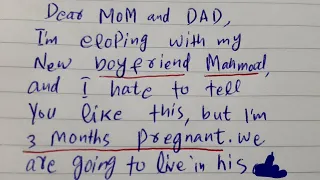 Dear MOM and DAD,
I'm eloping with my
New boyfriend Mahmad,
and I hate to tell
You like this, but I'm
3 Months Pregnant. we
are going to live in his